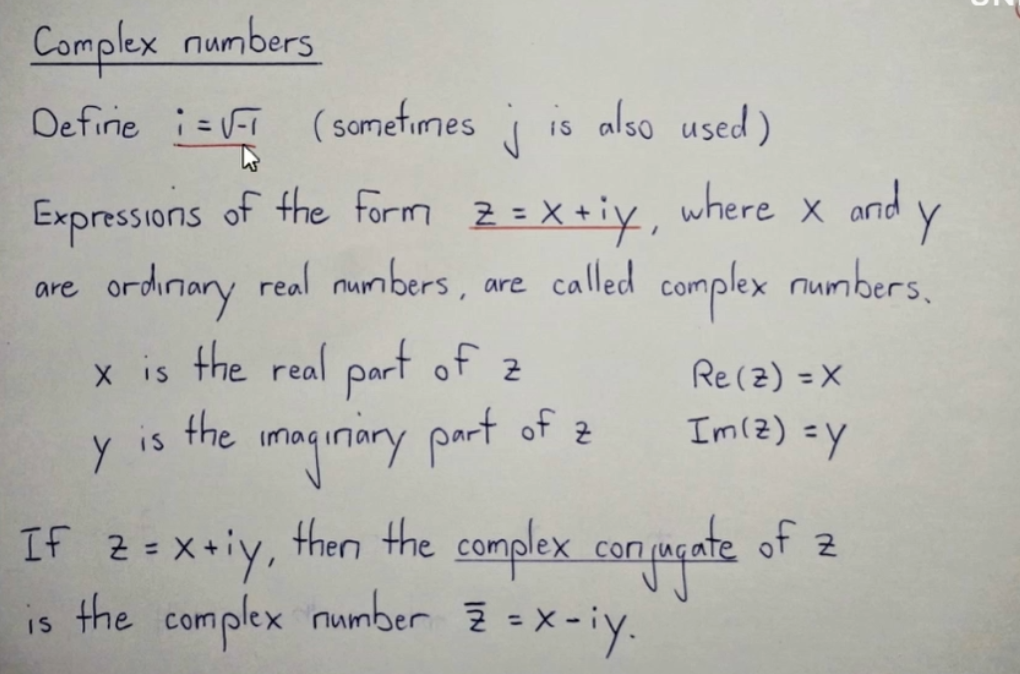 Complex numbers
Define i = √-1 (sometimes j is also used)
Expressions of the form z = x + iy, where x and y
are ordinary real numbers, are called complex numbers.
x is the real part of z Re(z) = x
y is the imaginary part of z Im(z) = y
If z = x + iy, then the complex conjugate of z
is the complex number z̅ = x - iy.